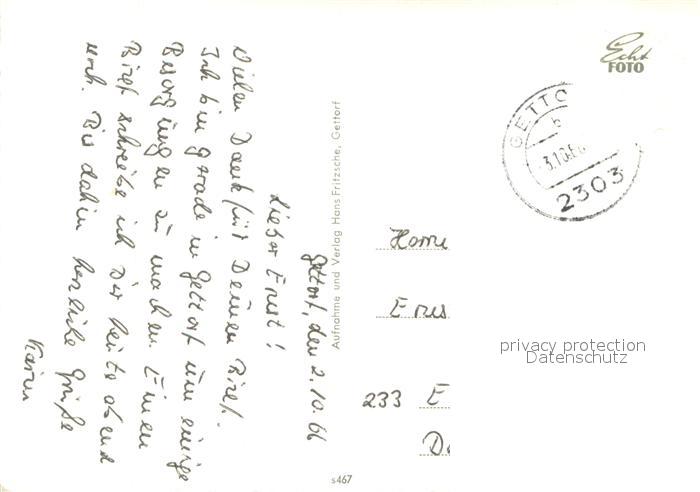 Gettorf, den 2.10.66
Lieber Ernst!
Vielen Dank für Deinen Brief.
Ich bin gerade in Gettorf um einige
Besorgungen zu machen. Einen
Brief schreibe ich Dir heute abend
noch. Bis dahin herzliche Grüße
Karin
Aufnahme und Verlag Hans Fritzsche, Gettorf
s467
Echt
FOTO
GETTO
b
-3.10.66
2303
Herrn
Erns
233 E
privacy protection
Datenschutz